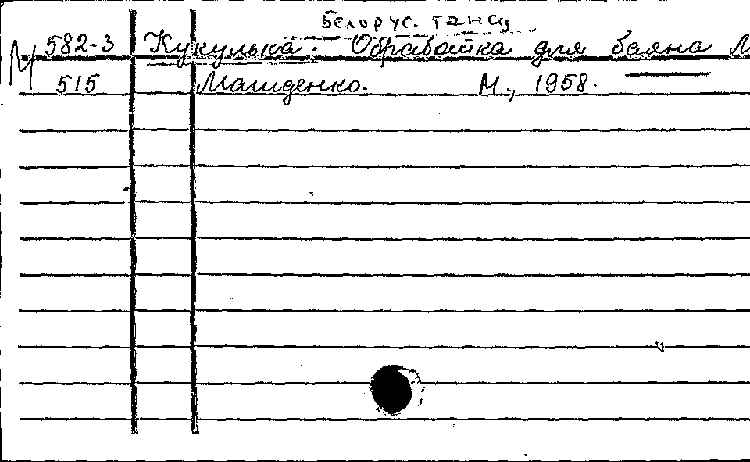 Белорус. танец
М 582-3 Кукулька. Обработка для баяна
515 Машденко. М., 1958.